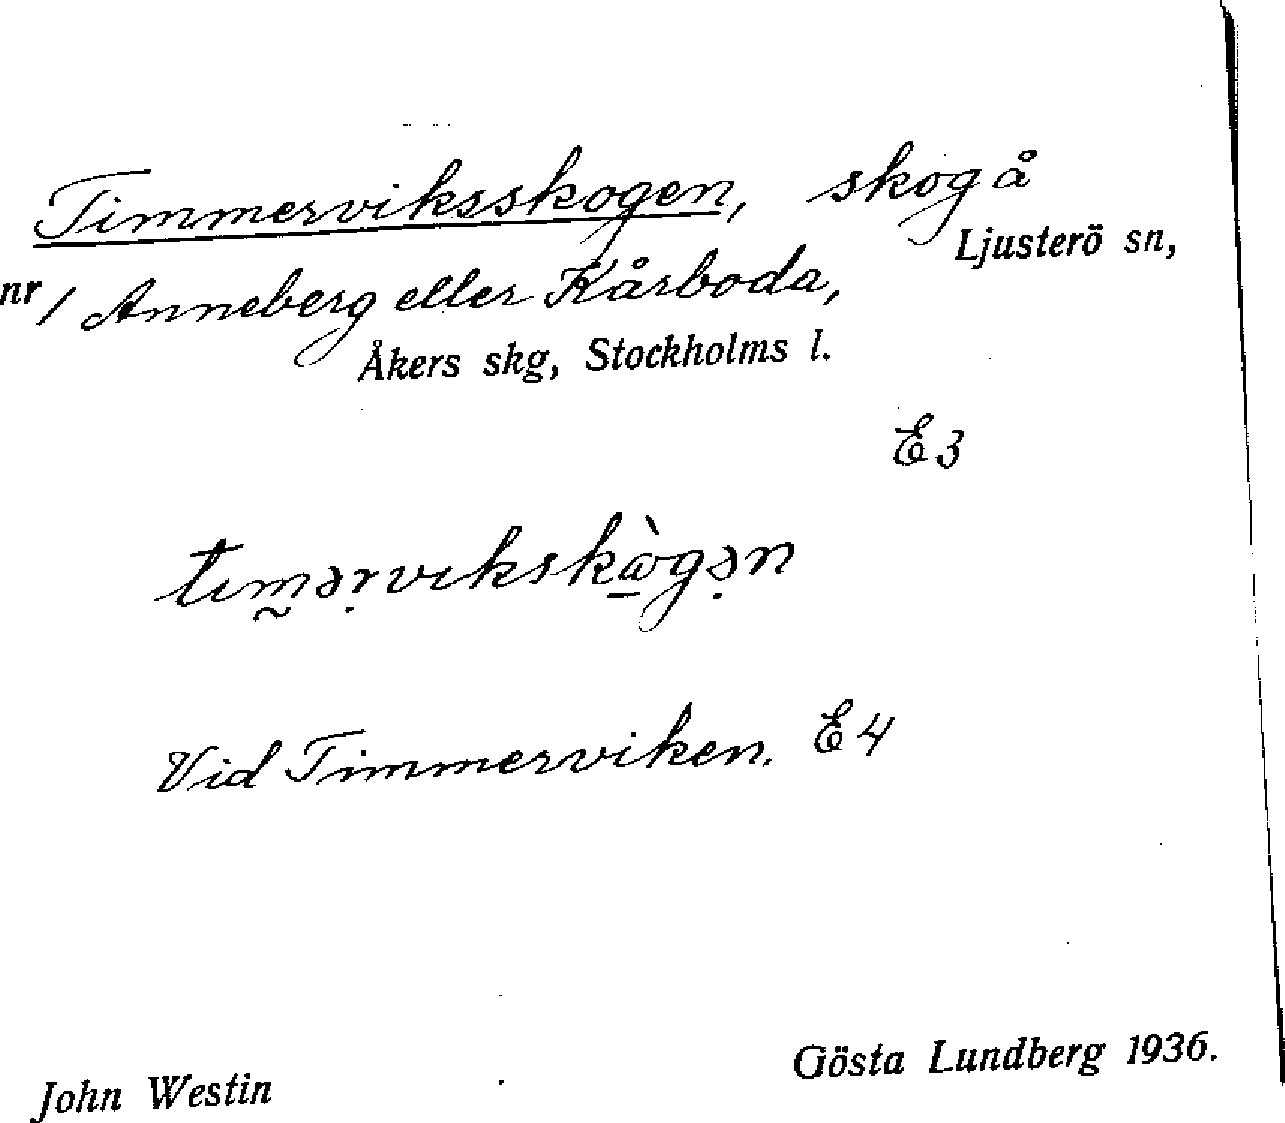 Timmerviksskogen, skog å
Ljusterö sn,
nr 1 Anneberg eller Kårboda,
Åkers skg, Stockholms l.
E3
Vid Timmerviken. E4
Gösta Lundberg 1936.
John Westin